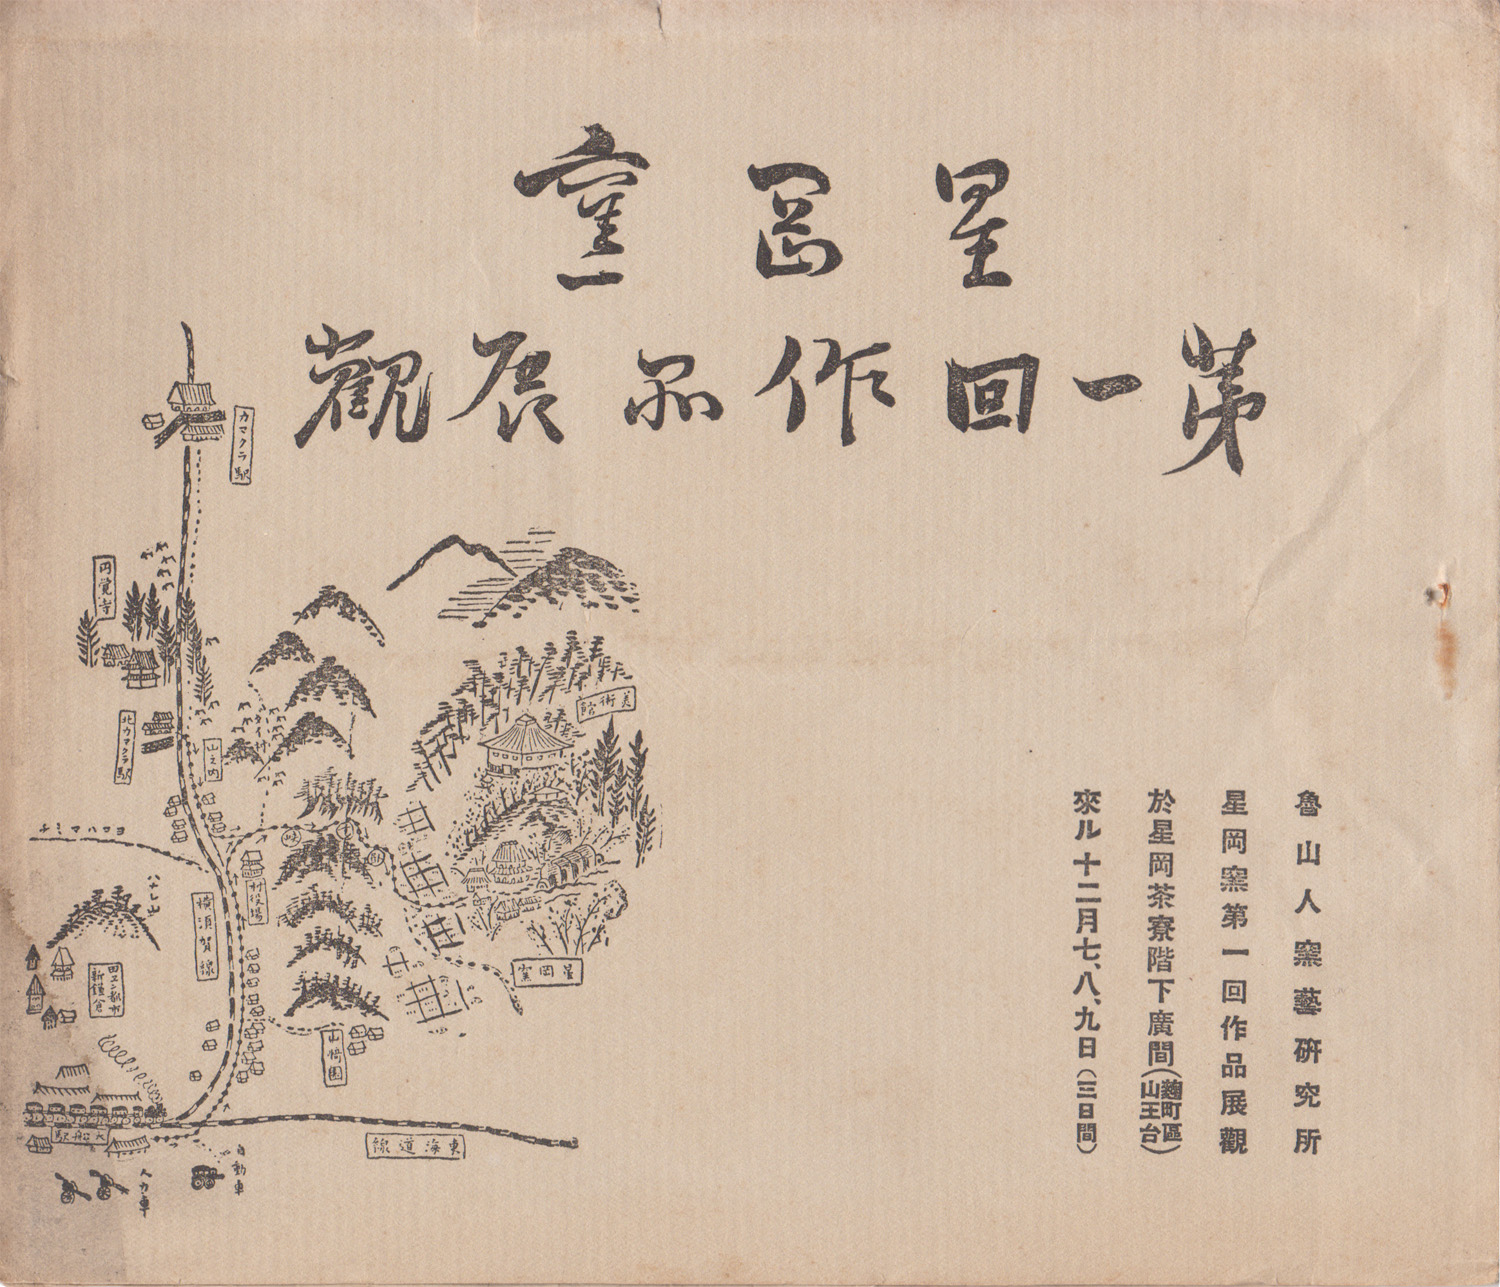 星岡窯
第一回作品展観
魯山人窯藝硏究所
星岡窯第一回作品展觀
於星岡茶寮階下廣間(麹町區山王台)
來ル十二月七、八、九日(三日間)
カマクラ駅
円覚寺
北カマクラ駅
山之内
ヨコハマミチ
美術館
村役場
横須賀線
星岡窯
田エン都市
新鎌倉
山椅園
大船駅
東海道線
自動車
人力車